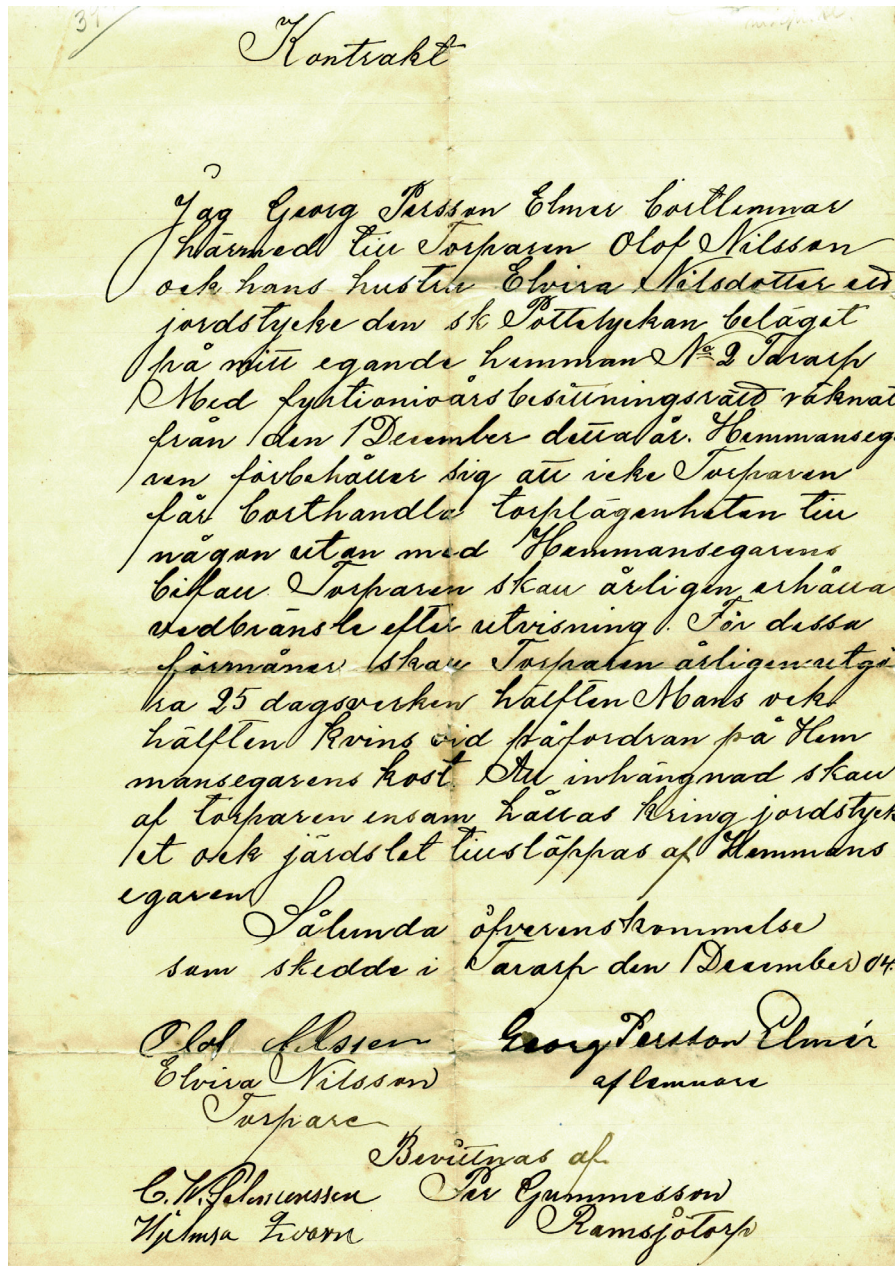 31
Kontrakt
Jag Georg Persson Elmer bortlemnar
härmed till Torparen Olof Nilsson
ock hans hustru Elvira Nilsdotter ett
jordstycke den sk Pottelyckan beläget
på mitt egande hemman No 2 Tararp
Med fyrtionioårsbesittningsrätt räknat
från den 1 December detta år. Hemmansega
ren förbehåller sig att icke Torparen
får borthandla torplägenheten till
någon utan med Hemmansegarens
bifall. Torparen skall årligen erhålla
vedbränsle efter utvisning. För dessa
förmåner skall Torparen årligen utgö
ra 25 dagsverken hälften Mans ock
hälften kvins vid påfordran på Hem
mansegarens kost. All inhängnad skall
af torparen ensam hållas kring jordstyck
et ock järdslet tillsläppas af Hemmans
egaren
Sålunda öfverenskommelse
som skedde i Tararp den 1 December 04.
Olof Nilssen Georg Persson Elmér
Elvira Nilsson aflemnare
Torpare
Bevittnas af
C. W. Per Gummesson
Ramsjötorp